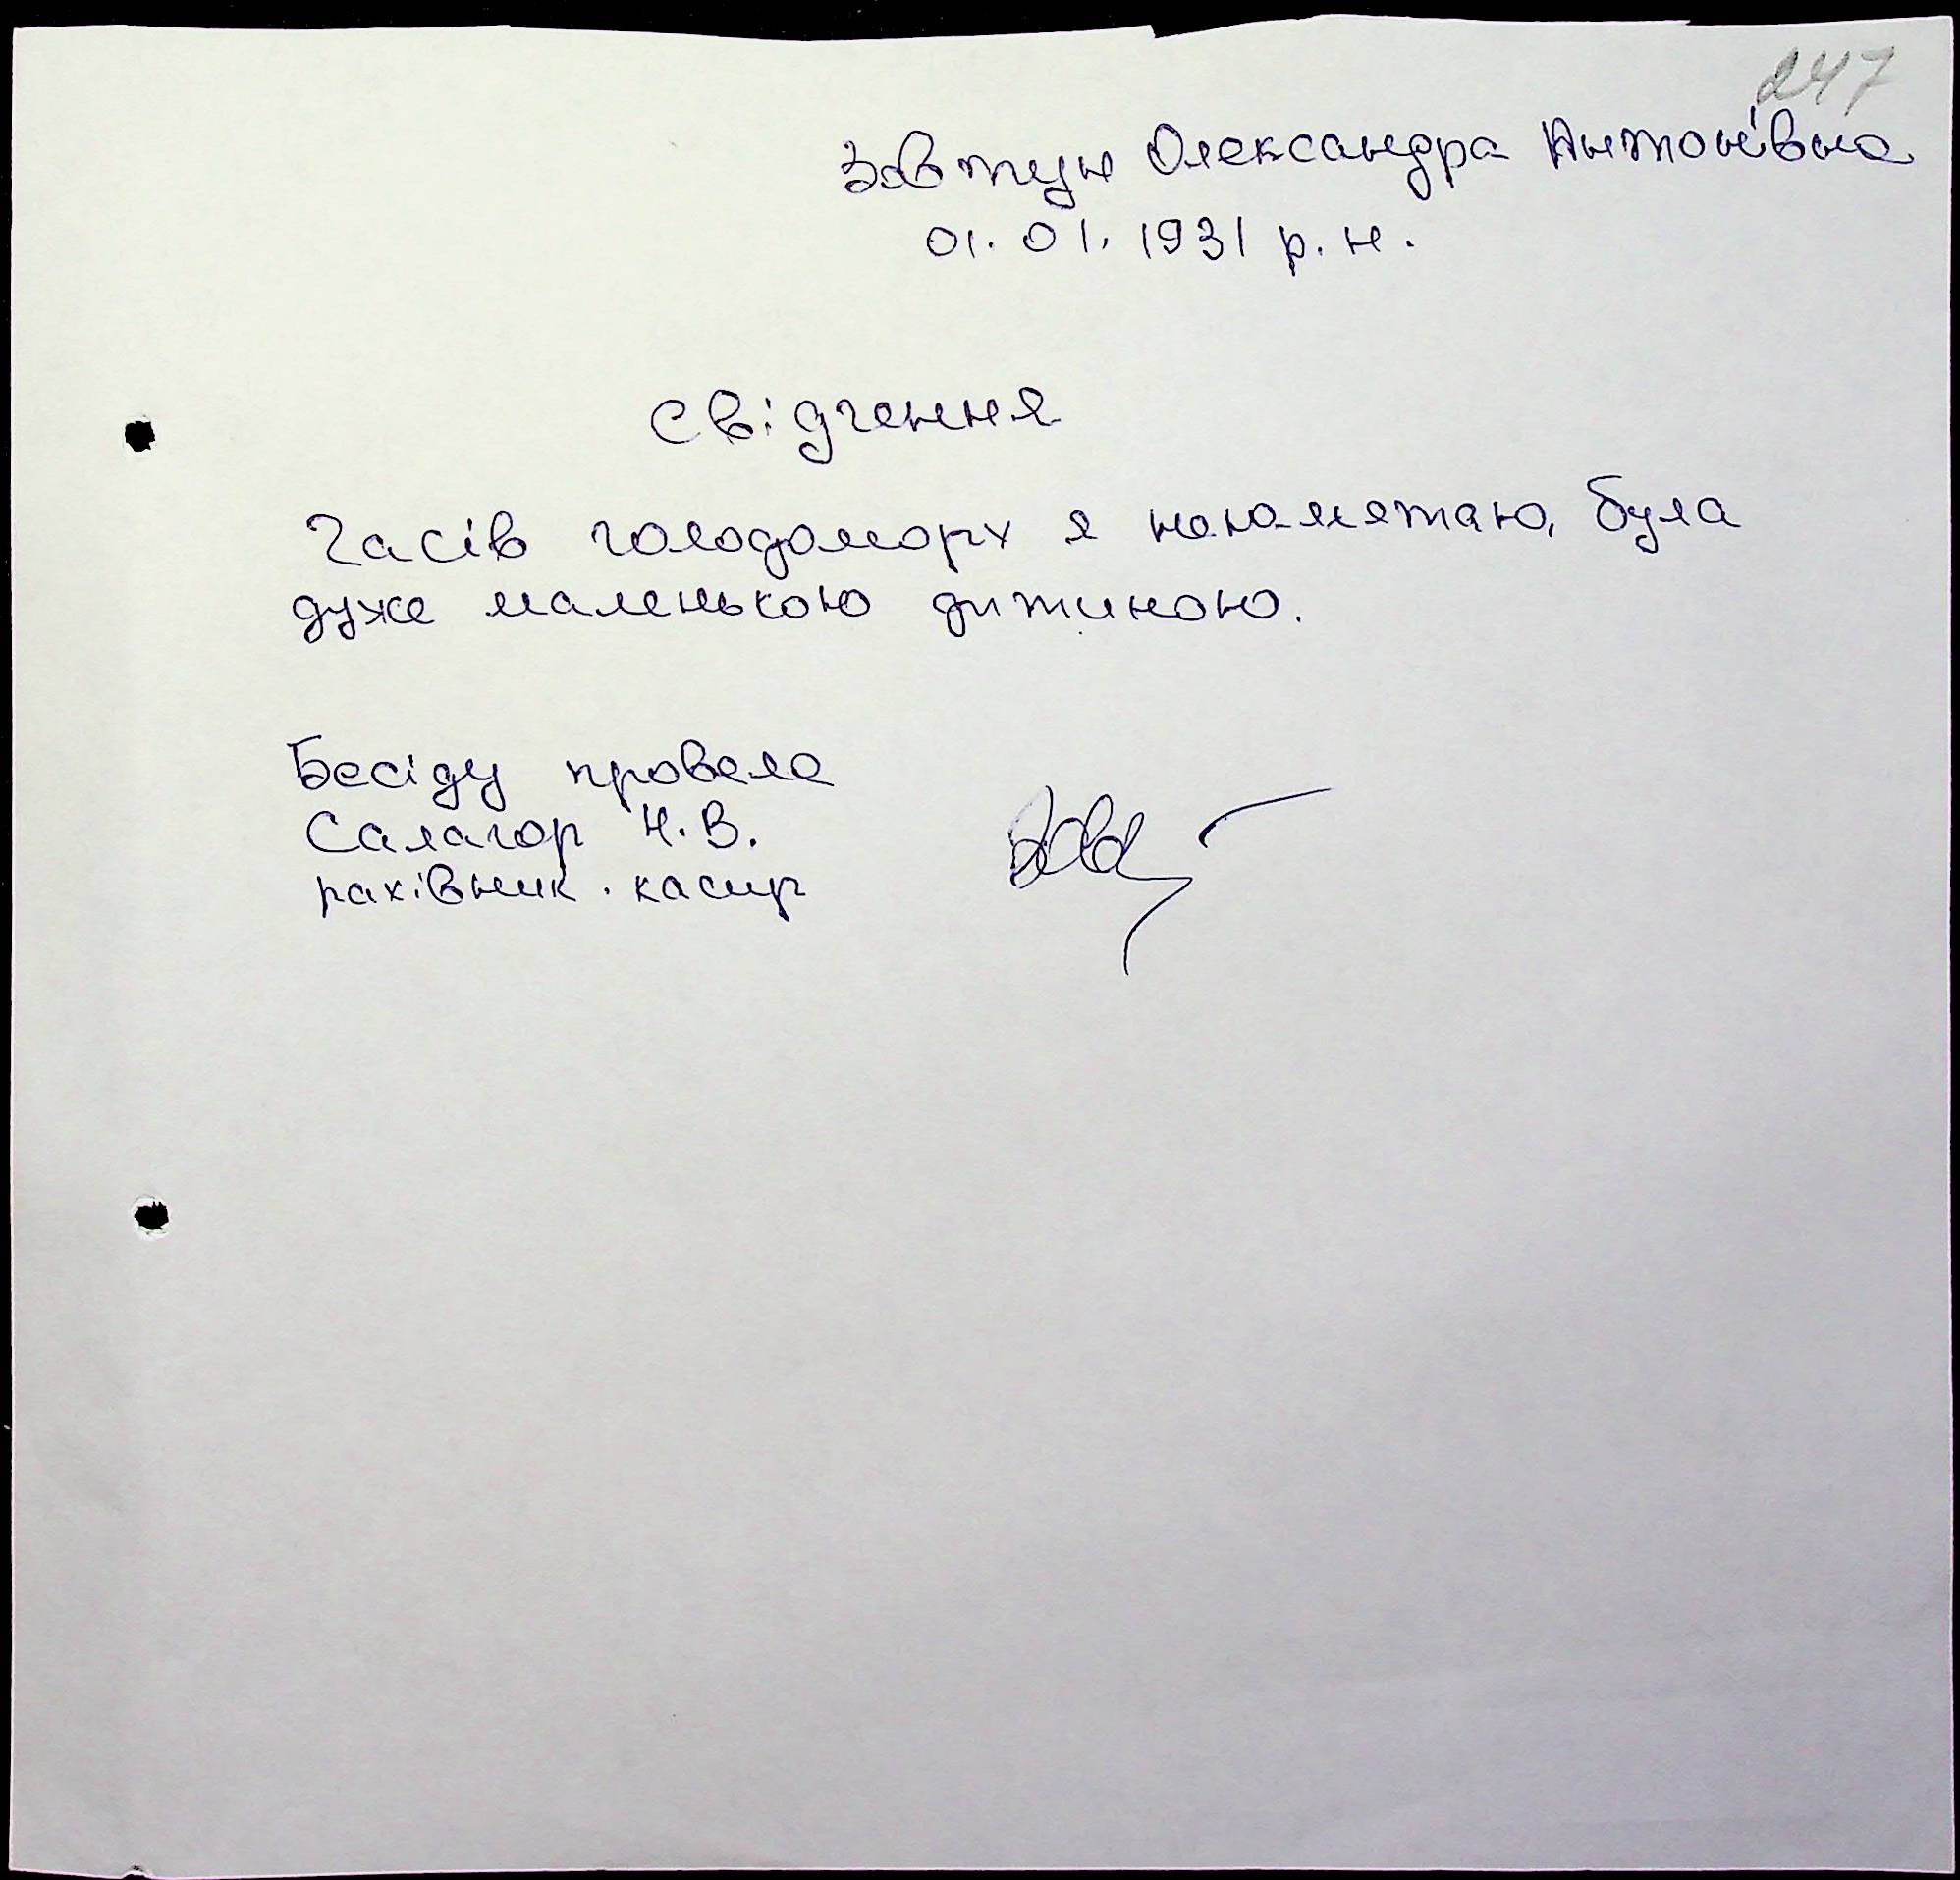 247
Зовтун Олександра Антонівна
01.01.1931 р.н.
Свідчення
Часів голодомору я непамятаю, була
дуже маленькою дитиною.
Бесіду провела
Салагор Н.В.
рахівник.касир